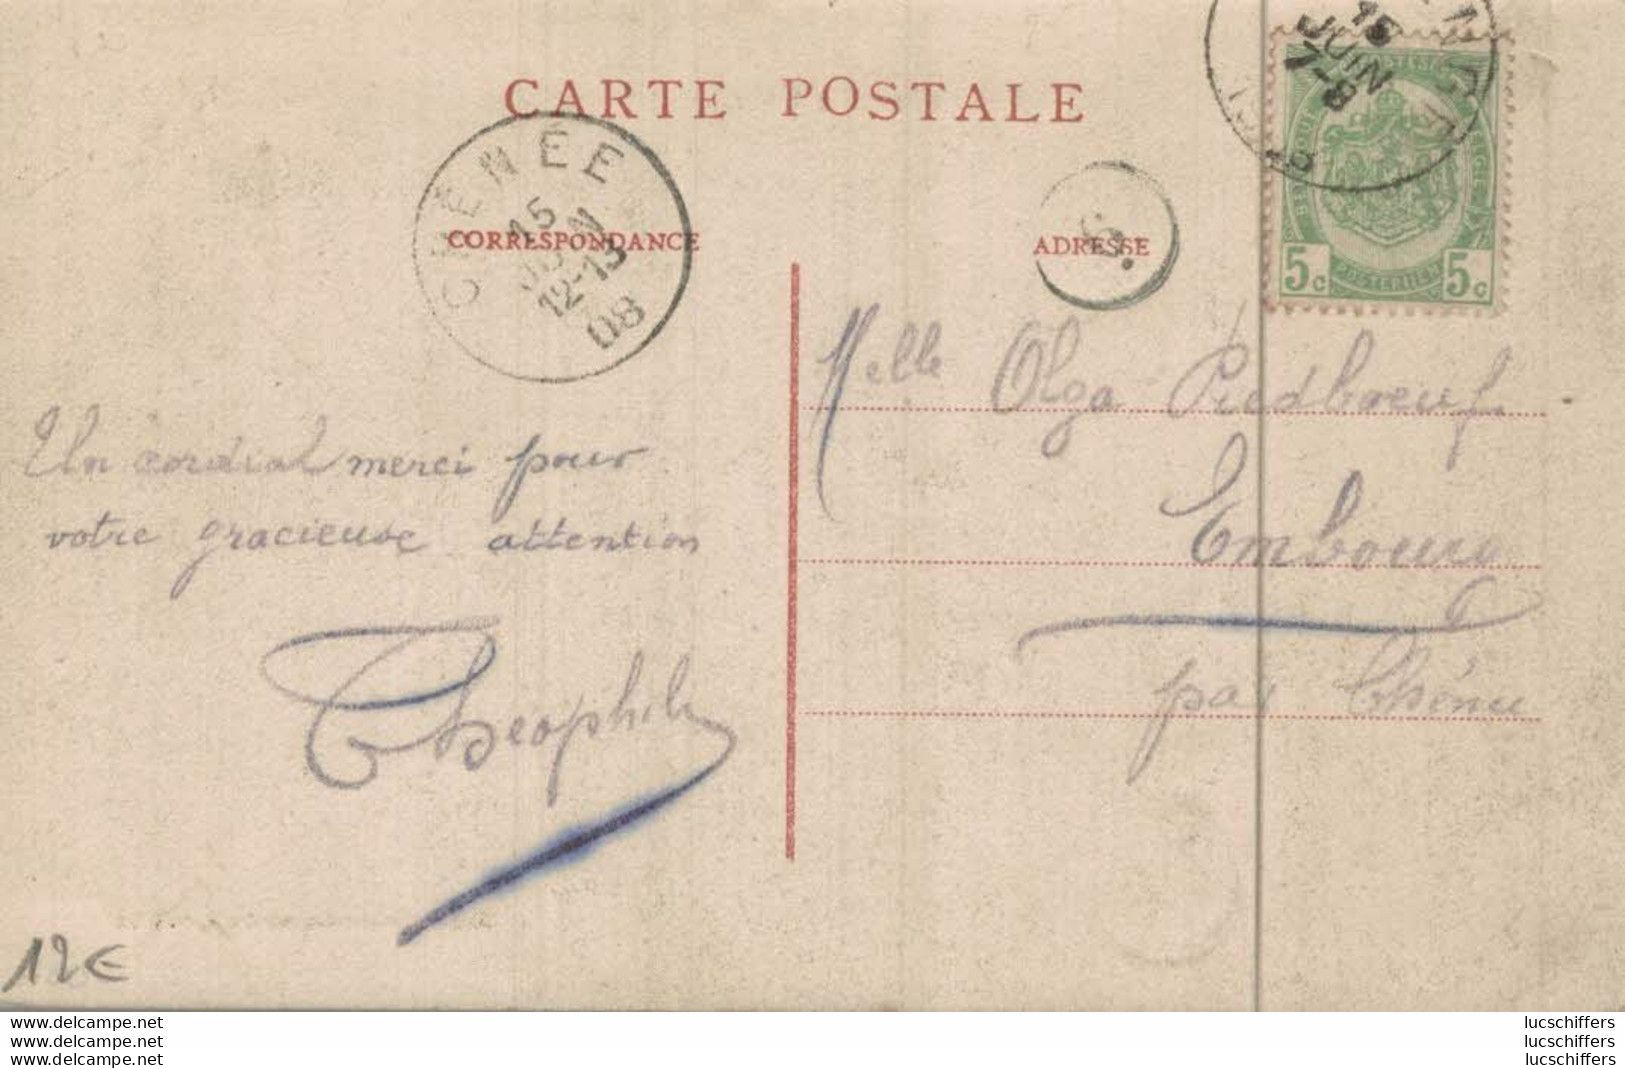 CARTE POSTALE
CHÊNÉE
15
JUIN
12-13
08
15
JUIN
7-8
CORRESPONDANCE
ADRESSE
5c 5c
POSTERIJEN
Melle Olga Piedboeuf
Embourg
par Chênée
Un cordial merci pour
votre gracieuse attention
Théophile
12€
www.delcampe.net
www.delcampe.net
www.delcampe.net
lucschiffers
lucschiffers
lucschiffers